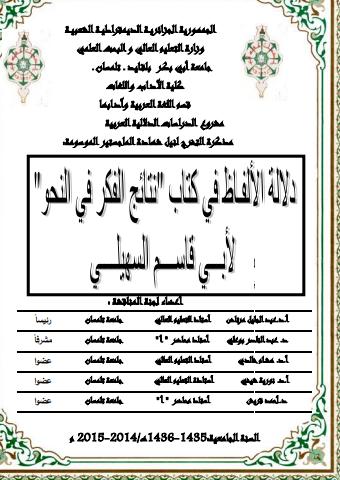 الجمهورية الجزائرية الديمقراطية الشعبية
وزارة التعليم العالي و البحث العلمي
جامعة أبي بكر بلقايد. تلمسان.
كلية الآداب واللغات
قسم اللغة العربية وآدابها
مشروع الدراسات الدلالية العربية
مذكرة التخرج لنيل شهادة الماجستير الموسومة:
دلالة الألفاظ في كتاب "نتائج الفكر في النحو"
لأبـــي قاســـم السهيلـــي
أعضاء لجنة المناقشة :
أ.د.عبد الجليل جامعة تلمسان أستاذ التعليم العالي رئيساً
د. عبد القادر أستاذ محاضر "أ" جامعة تلمسان مشرفاً
أ.د. هشام خالدي أستاذ التعليم العالي جامعة تلمسان عضوا
أ.د. نورية شيخي أستاذة التعليم العالي جامعة تلمسان عضوا
د.أحمد أستاذ محاضر "أ" جامعة تلمسان عضوا
السنة الجامعية:1435-1436هـ/2014-2015 م